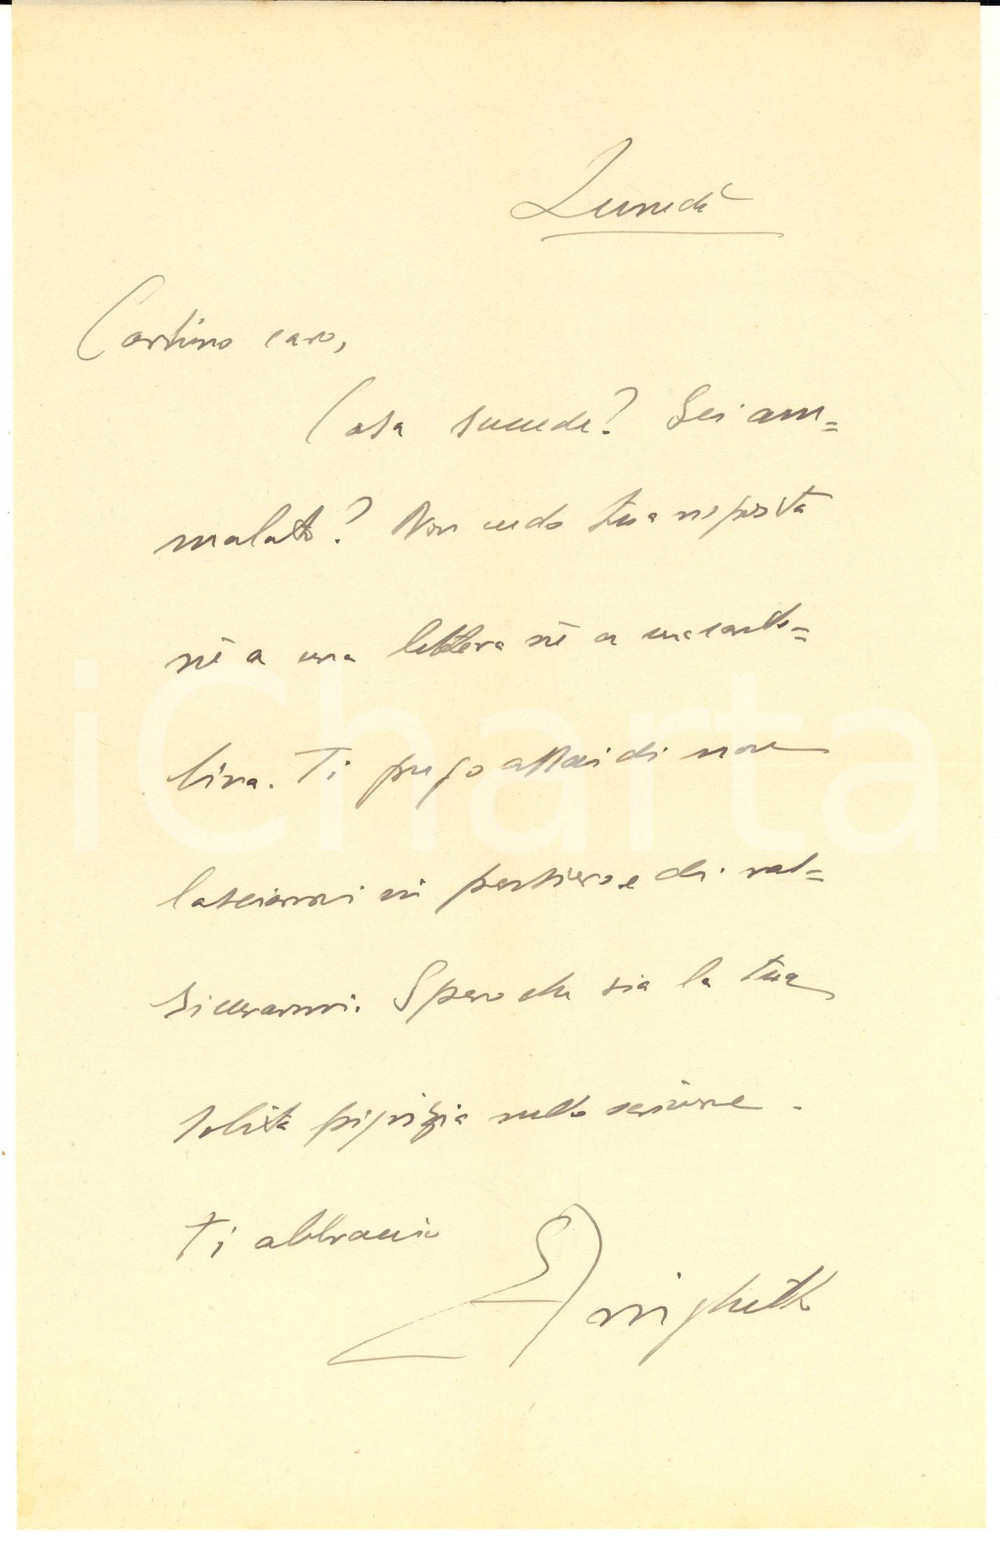 Lunedì
Carlino caro,
Cosa succede? Sei am=
malato? Non vedo tua risposta
nè a una lettera nè a una carto=
lina. Ti prego assai di non
lasciarmi in pensiero e di ras=
sicurarmi. Spero che sia la tua
solita pigrizia nello scrivere.
Ti abbraccio
Arrighetto
iCharta